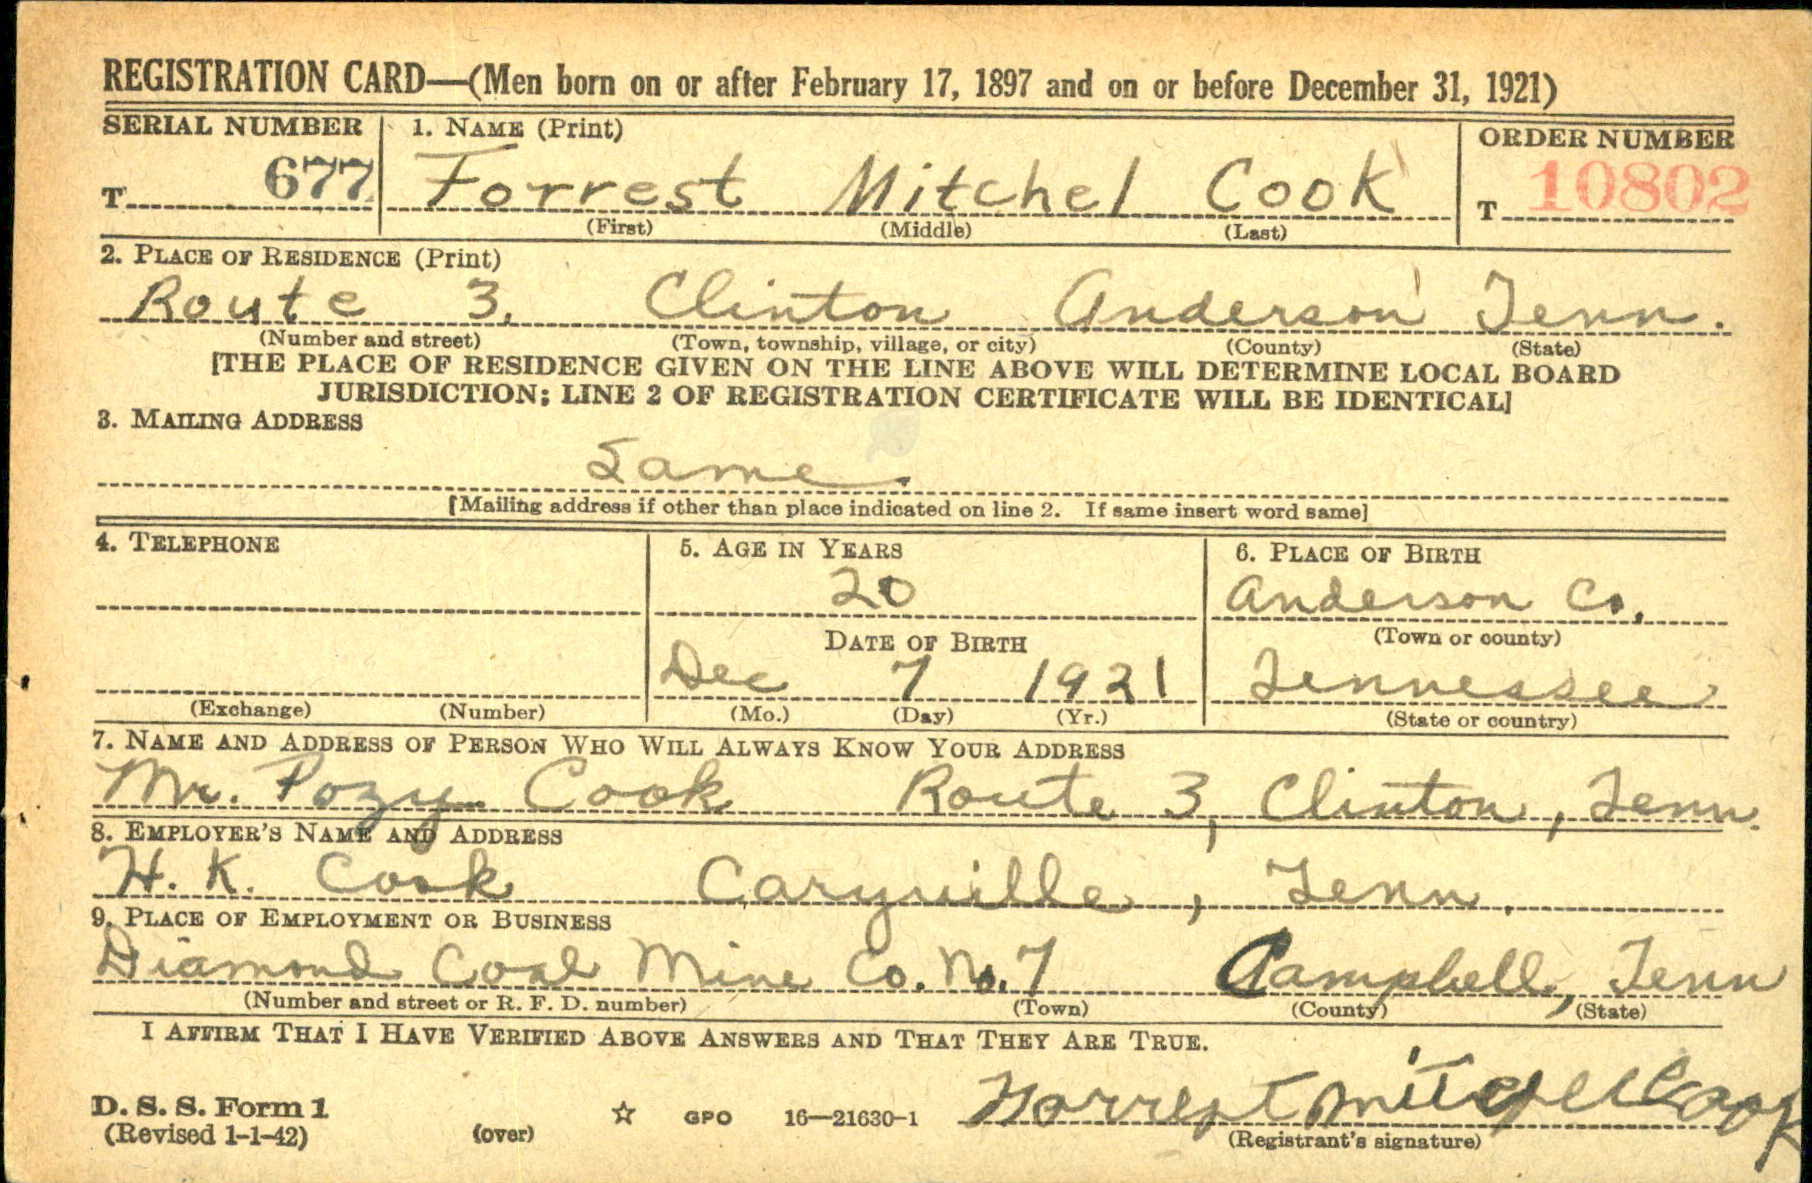 REGISTRATION CARD—(Men born on or after February 17, 1897 and on or before December 31, 1921)
SERIAL NUMBER 1. NAME (Print) ORDER NUMBER
T 677 Forrest Mitchel Cook T 10802
(First) (Middle) (Last)
2. PLACE OF RESIDENCE (Print)
Route 3, Clinton Anderson Tenn.
(Number and street) (Town, township, village, or city) (County) (State)
[THE PLACE OF RESIDENCE GIVEN ON THE LINE ABOVE WILL DETERMINE LOCAL BOARD
JURISDICTION; LINE 2 OF REGISTRATION CERTIFICATE WILL BE IDENTICAL]
3. MAILING ADDRESS
Same.
[Mailing address if other than place indicated on line 2. If same insert word same]
4. TELEPHONE 5. AGE IN YEARS 6. PLACE OF BIRTH
20 Anderson Co.
DATE OF BIRTH (Town or county)
Dec 7 1921 Tennessee
(Exchange) (Number) (Mo.) (Day) (Yr.) (State or country)
7. NAME AND ADDRESS OF PERSON WHO WILL ALWAYS KNOW YOUR ADDRESS
Mr. Pozy Cook Route 3, Clinton, Tenn.
8. EMPLOYER'S NAME AND ADDRESS
H. K. Cook Caryville, Tenn.
9. PLACE OF EMPLOYMENT OR BUSINESS
Diamond Coal Mine Co. No. 7 Campbell, Tenn
(Number and street or R. F. D. number) (Town) (County) (State)
I AFFIRM THAT I HAVE VERIFIED ABOVE ANSWERS AND THAT THEY ARE TRUE.
D. S. S. Form 1
(Revised 1-1-42) (over) GPO 16—21630-1 Forrest Mitchell Cook
(Registrant's signature)